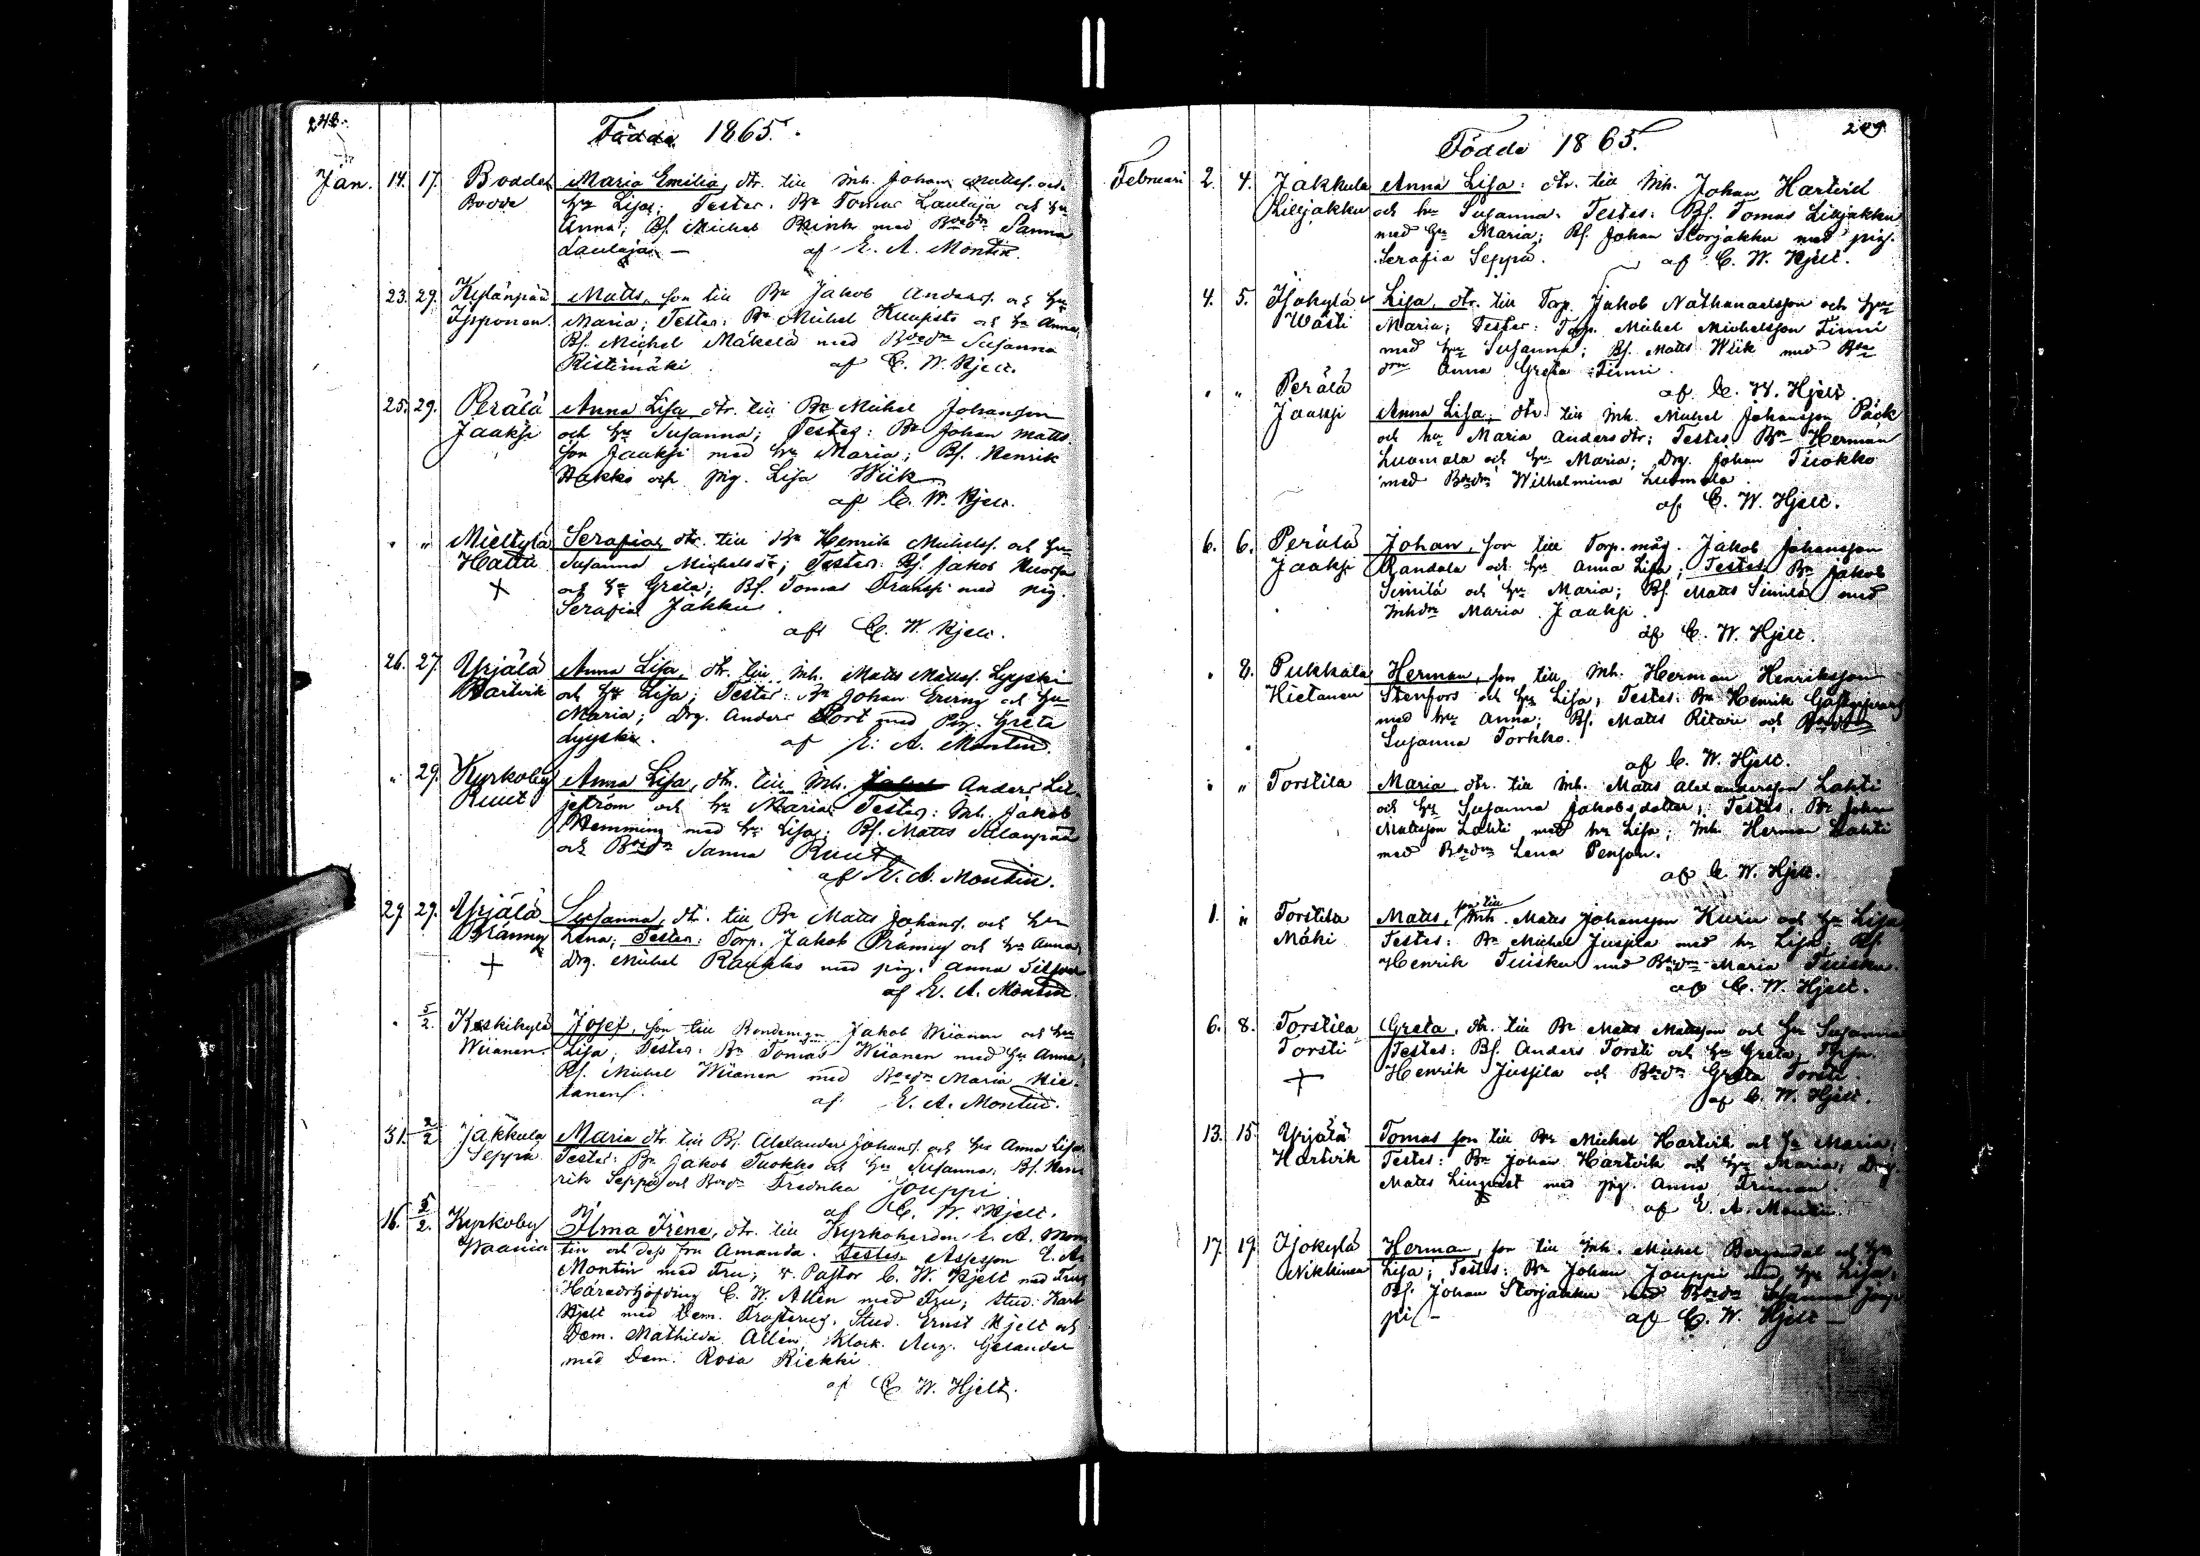 248.
Födde 1865.
Jan. 14. 17. Boddel Maria Emilia, dtr. till Inh. Johan Mattss. och
Bodde hu Lisa; Testes: Bn Tomas Laulaja och hu
Anna; Bs. Michel Brink med Bdedn Sanna
Laulaja. — af E. A. Montin.
23. 29. Kylänpää Matts, son till Bn Jakob Anderss. och hu
Ipponen. Maria; Testes: Bn Michel och hu Anna,
Bs. Michel Mäkelä med Bdedn Susanna
Ristimäki. af C. W. Hjelt.
25. 29. Perälä Anna Lisa, dtr. till Bn Michel Johansson
Jaaksi och hu Susanna; Testes: Bn Johan Matts
son Jaaksi med hu Maria; Bs. Henrik
Hakko och pig. Lisa Wiik
af C. W. Hjelt.
" " Mieltylä Serafia, dtr. till Henrik Michelss. och hu
Hattu Susanna Michelsdr; Testes: Bs. Jakob
+ och hu Greta; Bs. Tomas med pig.
Serafia Jakku.
af C. W. Hjelt.
26. 27. Yrjälä Anna Lisa, dtr. till Inh. Matts Mattss. Lyyski
Hartvik och hu Lisa; Testes: Bn Johan och hu
Maria; Drg. Anders Tort med Pig. Greta
Lyyski. af E. A. Montin.
" 29. Kyrkoby Anna Lisa, dtr. till Inh. Anders Lil-
Ruut jeström och hu Maria; Testes: Inh. Jakob
Hemming med hu Lisa; Bs. Matts
och Bdedn Sanna Ruut
af E. A. Montin.
29. 29. Yrjälä Susanna, dtr. till Bn Matts Johanss. och hu
Pränny Lena; Testes: Torp. Jakob Pränny och hu Anna,
+ Drg. Michel med pig. Anna
af E. A. Montin.
" 5/2. Keskikylä Josef, son till Bondeman Jakob Wiianen och hu
Wiianen. Lisa; Testes: Bn Tomas Wiianen med hu Anna;
Bs. Michel Wiianen med Bdedn Maria Hie-
tanen. af E. A. Montin.
31. 2/2 Jakkula Maria dtr. till Bs. Alexander Johanss. och hu Anna Lisa.
Seppä Testes: Bn Jakob Tuokko och hu Susanna; Bs. Hen
rik Seppä och Bdedn Fredrika Jouppi
af C. W. Hjelt.
16. 5/2. Kyrkoby Ilma Irene, dtr. till Kyrkoherden E. A. Mon
Waania tin och dess fru Amanda. Testes: Assessor E. A.
Montin med Fru; v. Pastor C. W. Hjelt med Fru;
Häradshöfding C. W. Allén med Fru; Stud. Karl
Hjelt med Dem. Stud. Ernst Hjelt och
Dem. Mathilda Allén; Klock. Aug. Gelander
med Dem. Rosa Riekki
af C. W. Hjelt.
249.
Födde 1865.
Februari 2. 4. Jakkula Anna Lisa: dtr. till Inh. Johan Hartvik
Lilljakku och hu Susanna. Testes: Bs. Tomas Lilljakku
med hu Maria; Bs. Johan Storjakku med pig.
Serafia Seppä. af C. W. Hjelt.
4. 5. Ijokylä Lisa, dtr. till Torp. Jakob Nathanaelsson och hu
Wästi Maria; Testes: Torp. Michel Michelsson Finni
med hu Susanna; Bs. Matts Wiik med Bde
drn Anna Greta Finni.
af C. W. Hjelt.
" " Perälä
Jaaksi Anna Lisa, dtr. till Inh. Michel Johansson Päck
och hu Maria Andersdtr; Testes Bn Herman
Luomala och hu Maria; Drg. Johan Tuokko
med Bdedn Wilhelmina Luomala
af C. W. Hjelt.
6. 6. Perälä Johan, son till Torp. måg. Jakob Johansson
Jaaksi Randala och hu Anna Lisa; Testes Bn Jakob
Similä och hu Maria; Bs. Matts Similä med
Inhdn Maria Jaaksi.
af C. W. Hjelt.
" 8. Pukkala Herman, son till Inh. Herman Henriksson
Hietanen Stenfors och hu Lisa; Testes: Bn Henrik
med hu Anna; Bs. Matts Ritari och Bdedn
Susanna Torkko.
af C. W. Hjelt.
" " Torstila Maria, dtr. till Inh. Matts Alexandersson Lahti
och hu Susanna Jakobsdotter; Testes. Bn Johan
Mattsson Lahti med hu Lisa; Inh. Herman Lahti
med Bdedn Lena Penson.
af C. W. Hjelt.
1. " Torstila Matts, son till Inh. Matts Johansson Kuru och hu Lisa
Mäki Testes: Bn Michel Jussila med hu Lisa; Bs.
Henrik Tuisku med Bdedn Maria Tuisku.
af C. W. Hjelt.
6. 8. Torstila Greta, dtr. till Bn Matts Mattsson och hu Susanna
Torsti Testes: Bs. Anders Torsti och hu Greta;
+ Henrik Jussila och Bdedn Greta Torsti.
af C. W. Hjelt.
13. 15. Yrjälä Tomas son till Bn Michel Hartvik och hu Maria;
Hartvik Testes: Bn Johan Hartvik och hu Maria; Drg.
Matts Linqvist med pig. Anna
af E. A. Montin.
17. 19. Ijokylä Herman, son till Inh. Michel Bergendal och hu
Nikkinen Lisa; Testes: Bn Johan Jouppi med hu Lisa;
Bs. Johan Storjakku med Bdedn Susanna Joup
pi — af C. W. Hjelt —